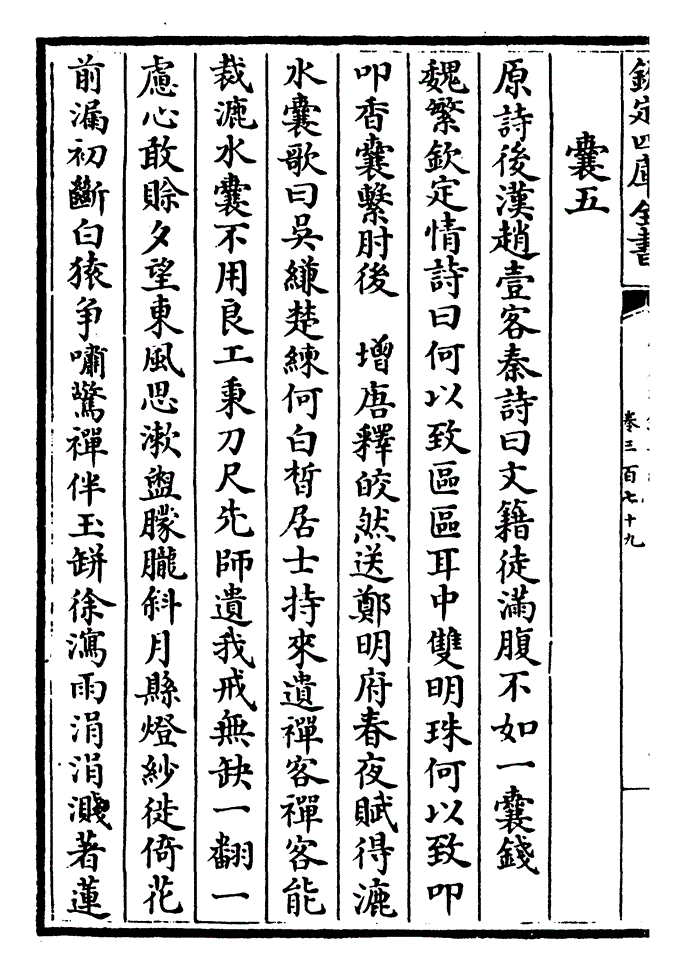 欽定四庫全書
卷三百七十九
囊五
原詩後漢趙壹客秦詩曰文籍徒滿腹不如一囊錢
魏繁欽定情詩曰何以致區區耳中雙明珠何以致叩
叩香囊繫肘後　增唐釋皎然送鄭明府春夜賦得漉
水囊歌曰吳縑楚練何白晳居士持來遺禪客禪客能
裁漉水囊不用良工秉刀尺先師遺我戒無缺一翻一
慮心敢賒夕望東風思漱盥朦朧斜月縣燈紗徙倚花
前漏初斷白猿争嘯驚禪伴玉缾徐瀉雨涓涓濺著蓮